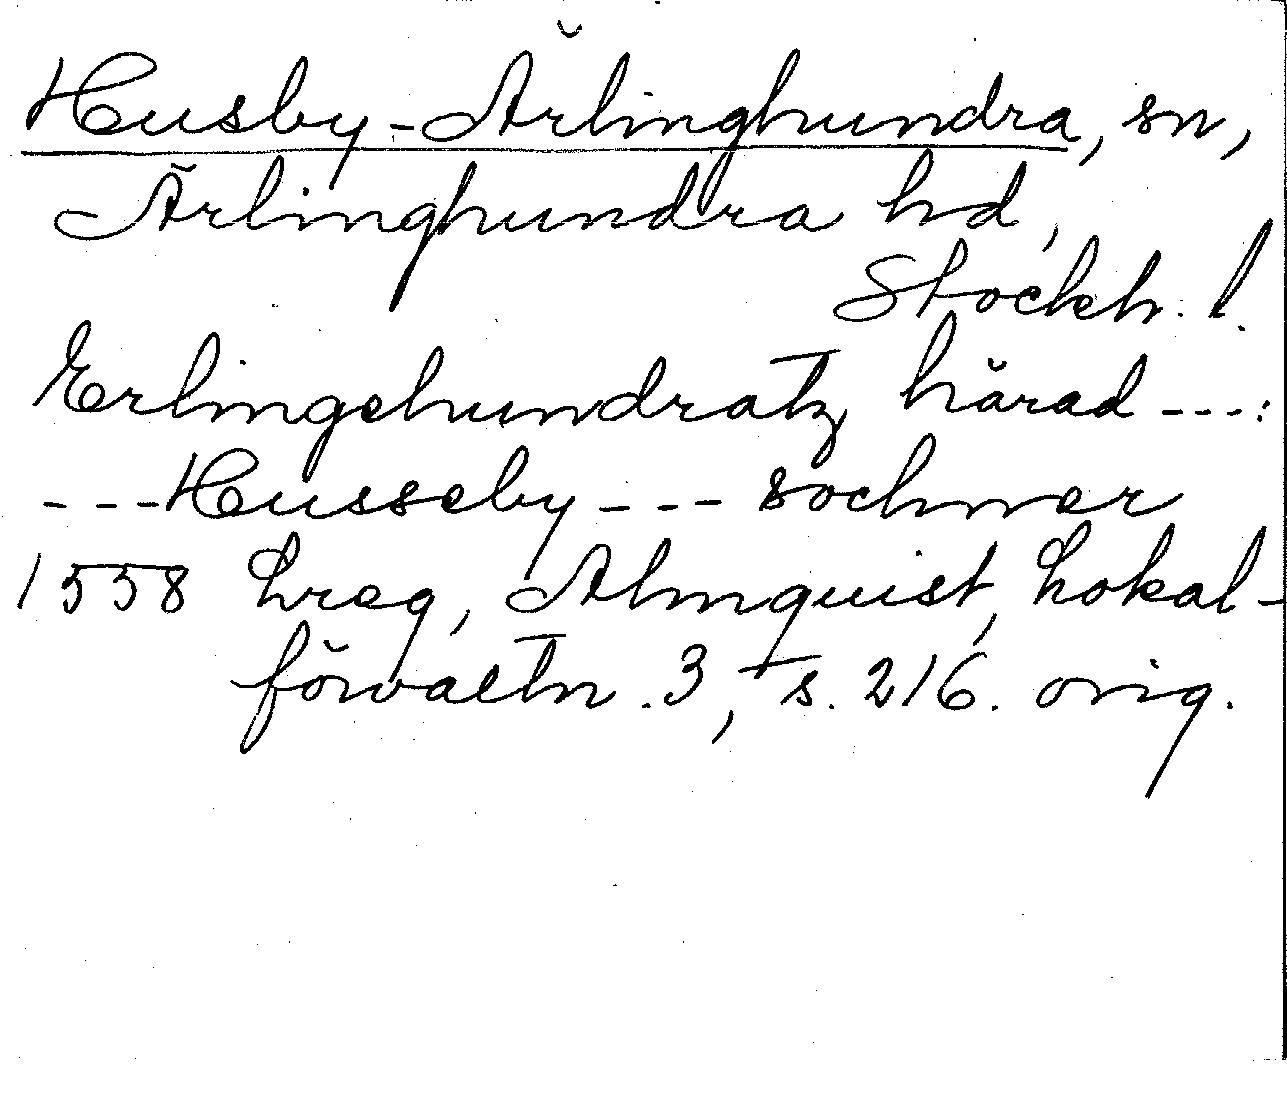 Husby-Ärlinghundra, sn,
Ärlinghundra hd,
Stockh. l.
Erlingehundratz härad ---:
---Husseby --- sochner
1558 Lreg, Almquist, Lokal-
förvaltn. 3, s. 216. orig.